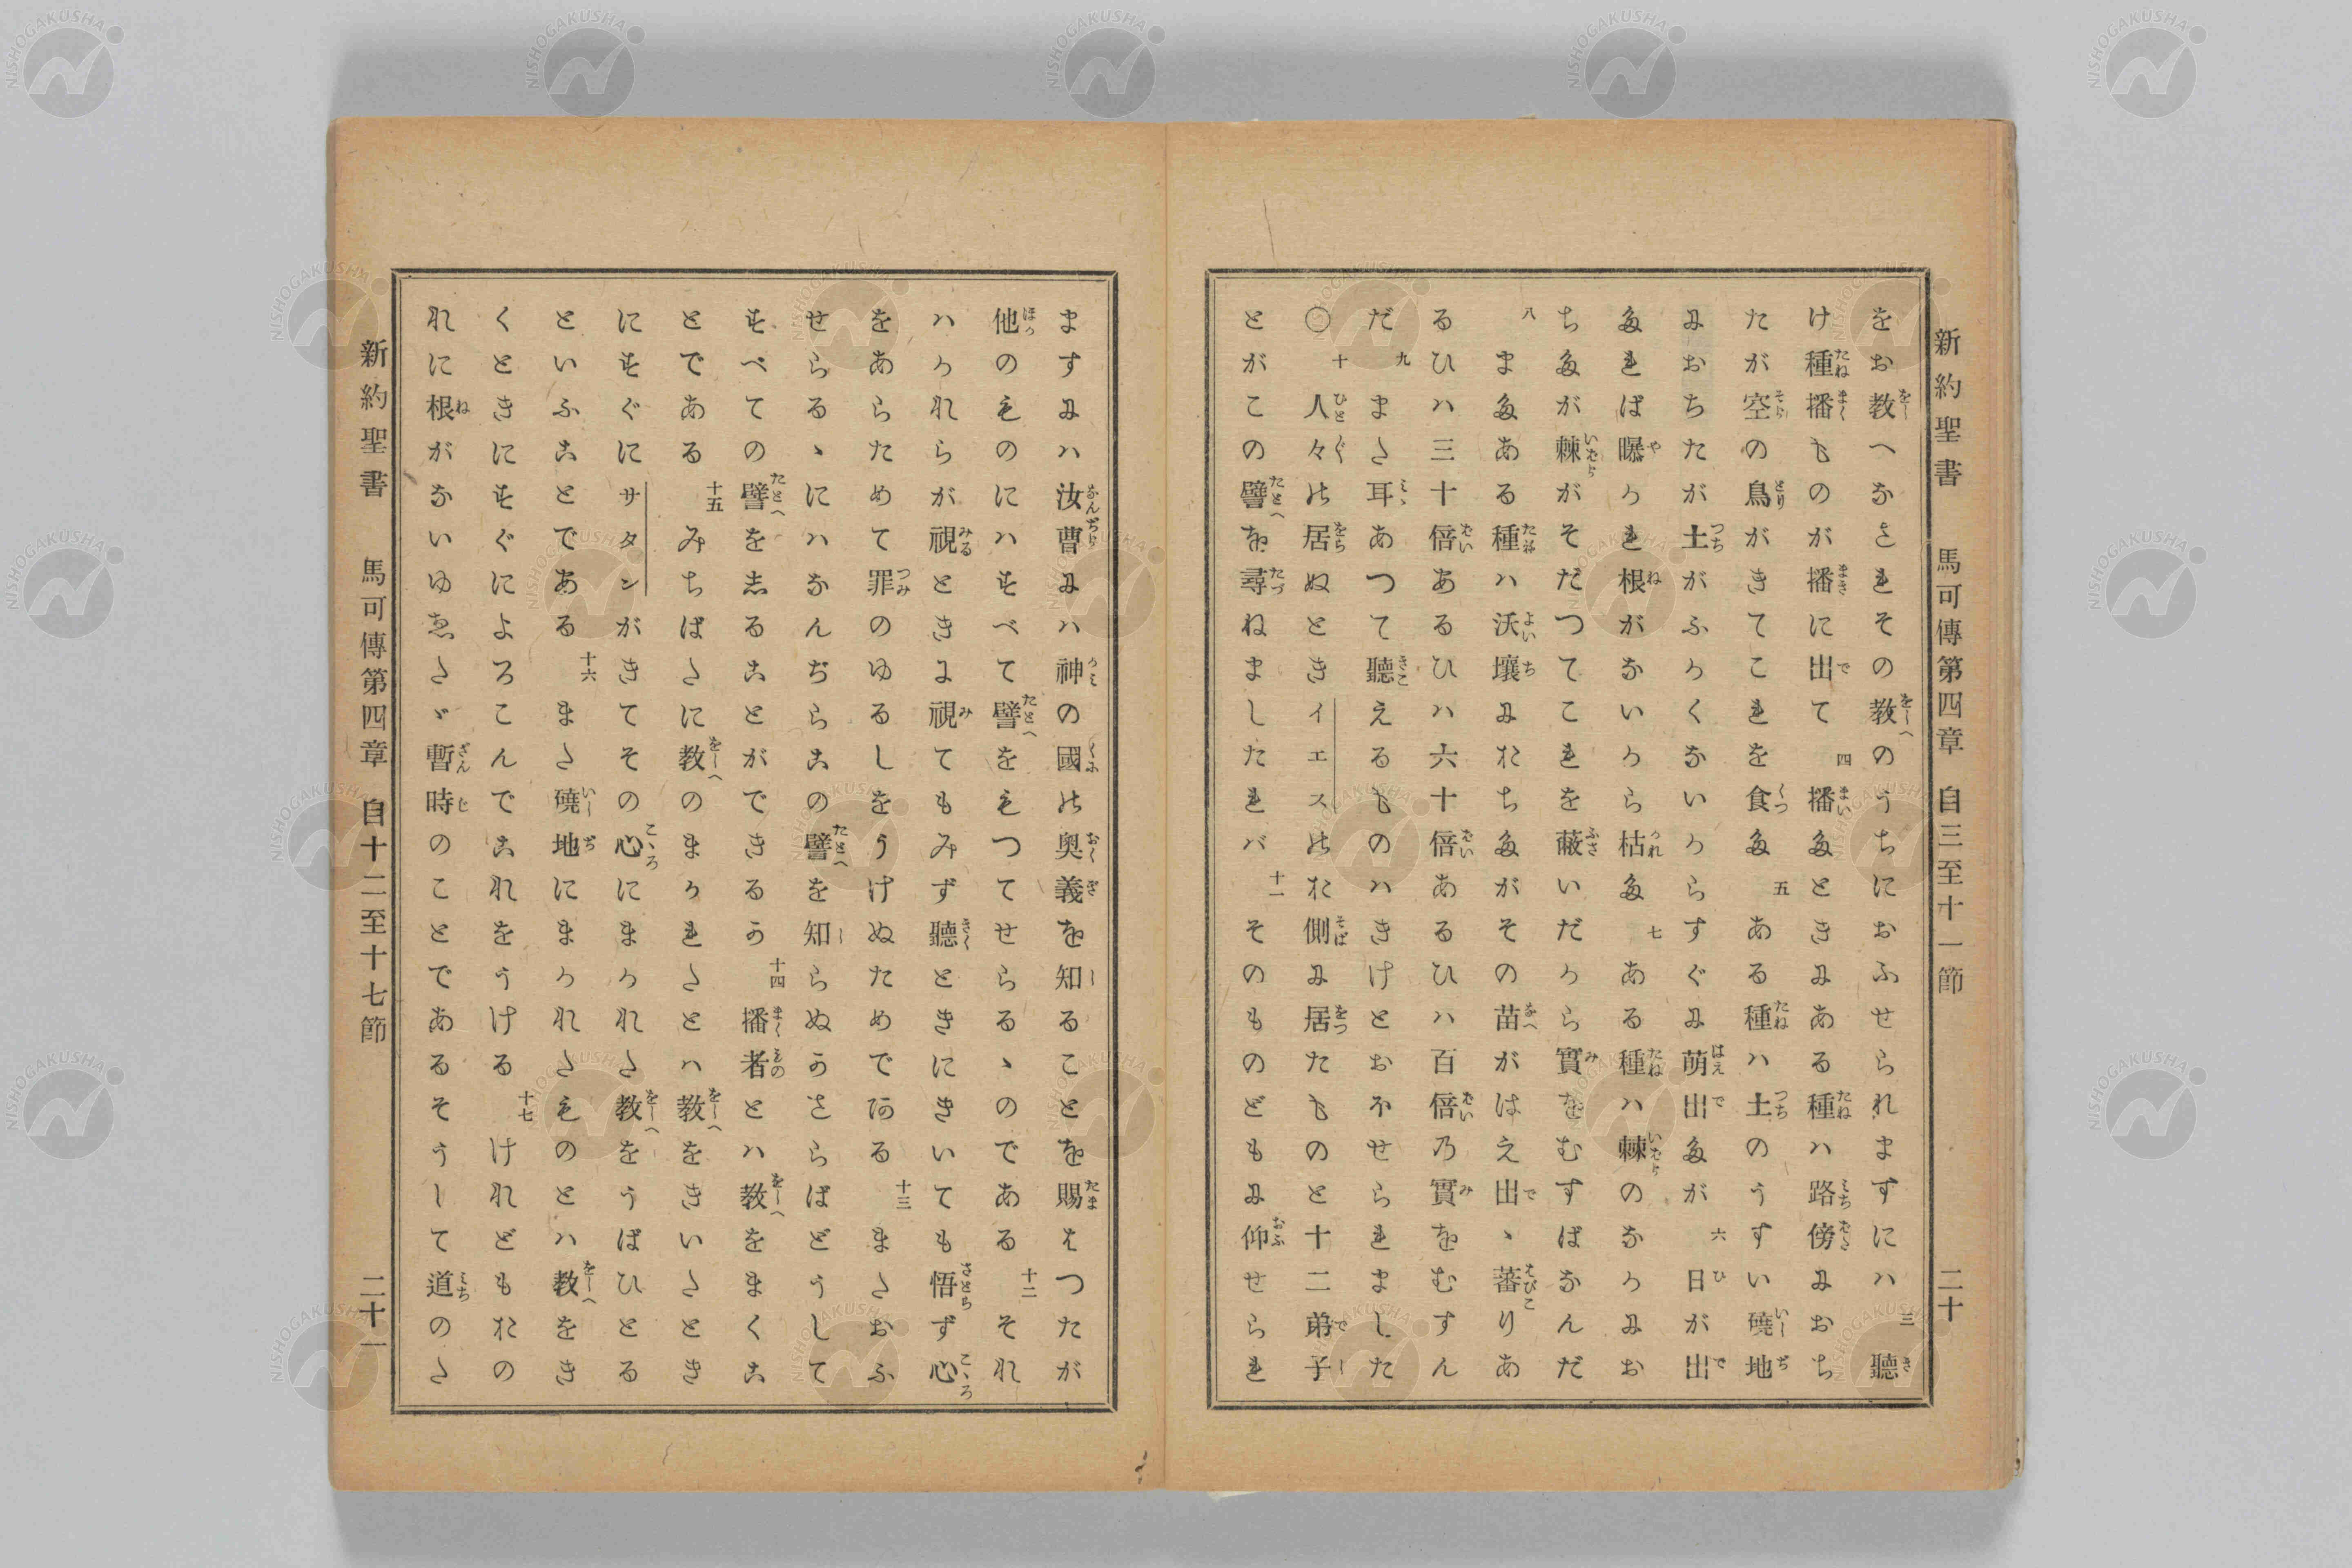 新約聖書 馬可傳第四章 自三至十一節 二十
をお教へなされその教のうちにおふせられますにハ 三 聽
け種播ものが播に出て 四 播たときにある種ハ路傍におち
たが空の鳥がきてこれを食た 五 ある種ハ土のうすい磽地
におちたが土がふかくないからすぐに萌出たが 六 日が出
たれば曝かれ根がないから枯た 七 ある種ハ棘のなかにお
ちたが棘がそだつてこれを蔽いだから實をむすばなんだ
八 またある種ハ沃壤におちたがその苗がはえ出ゝ蕃りあ
るひハ三十倍あるひハ六十倍あるひハ百倍乃實をむすん
だ 九 また耳あつて聽えるものハきけとおほせられました
〇 十 人々の居ぬときイエスのお側に居たものと十二弟子
とがこの譬を尋ねましたれバ 十一 そのものどもに仰せられ
ますにハ汝曹にハ神の國の奥義を知ることを賜はつたが
他のものにハすべて譬をもつてせらるゝのである 十二 それ
ハかれらが視ときに視てもみず聽ときにきいても悟ず心
をあらためて罪のゆるしをうけぬためである 十三 またおふ
せらるゝにハなんぢらこの譬を知らぬかさらばどうして
すべての譬をしることができるか 十四 播者とハ教をまくこ
とである 十五 みちばたに教のまかれたとハ教をきいたとき
にすぐにサタンがきてその心にまかれた教をうばひとる
といふことである 十六 また磽地にまかれたものとハ教をき
くときにすぐによろこんでこれをうける 十七 けれどもおの
れに根がないゆゑたゞ暫時のことであるそうして道のた
新約聖書 馬可傳第四章 自十二至十七節 二十一
NISHOGAKUSHA